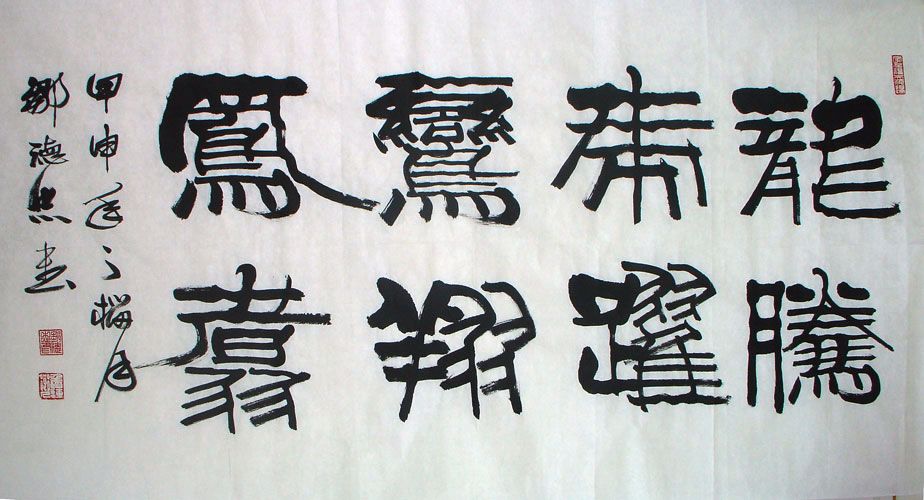 龍騰
虎躍
鸞翔
鳳翥
甲申年之榴月
鄒德忠書